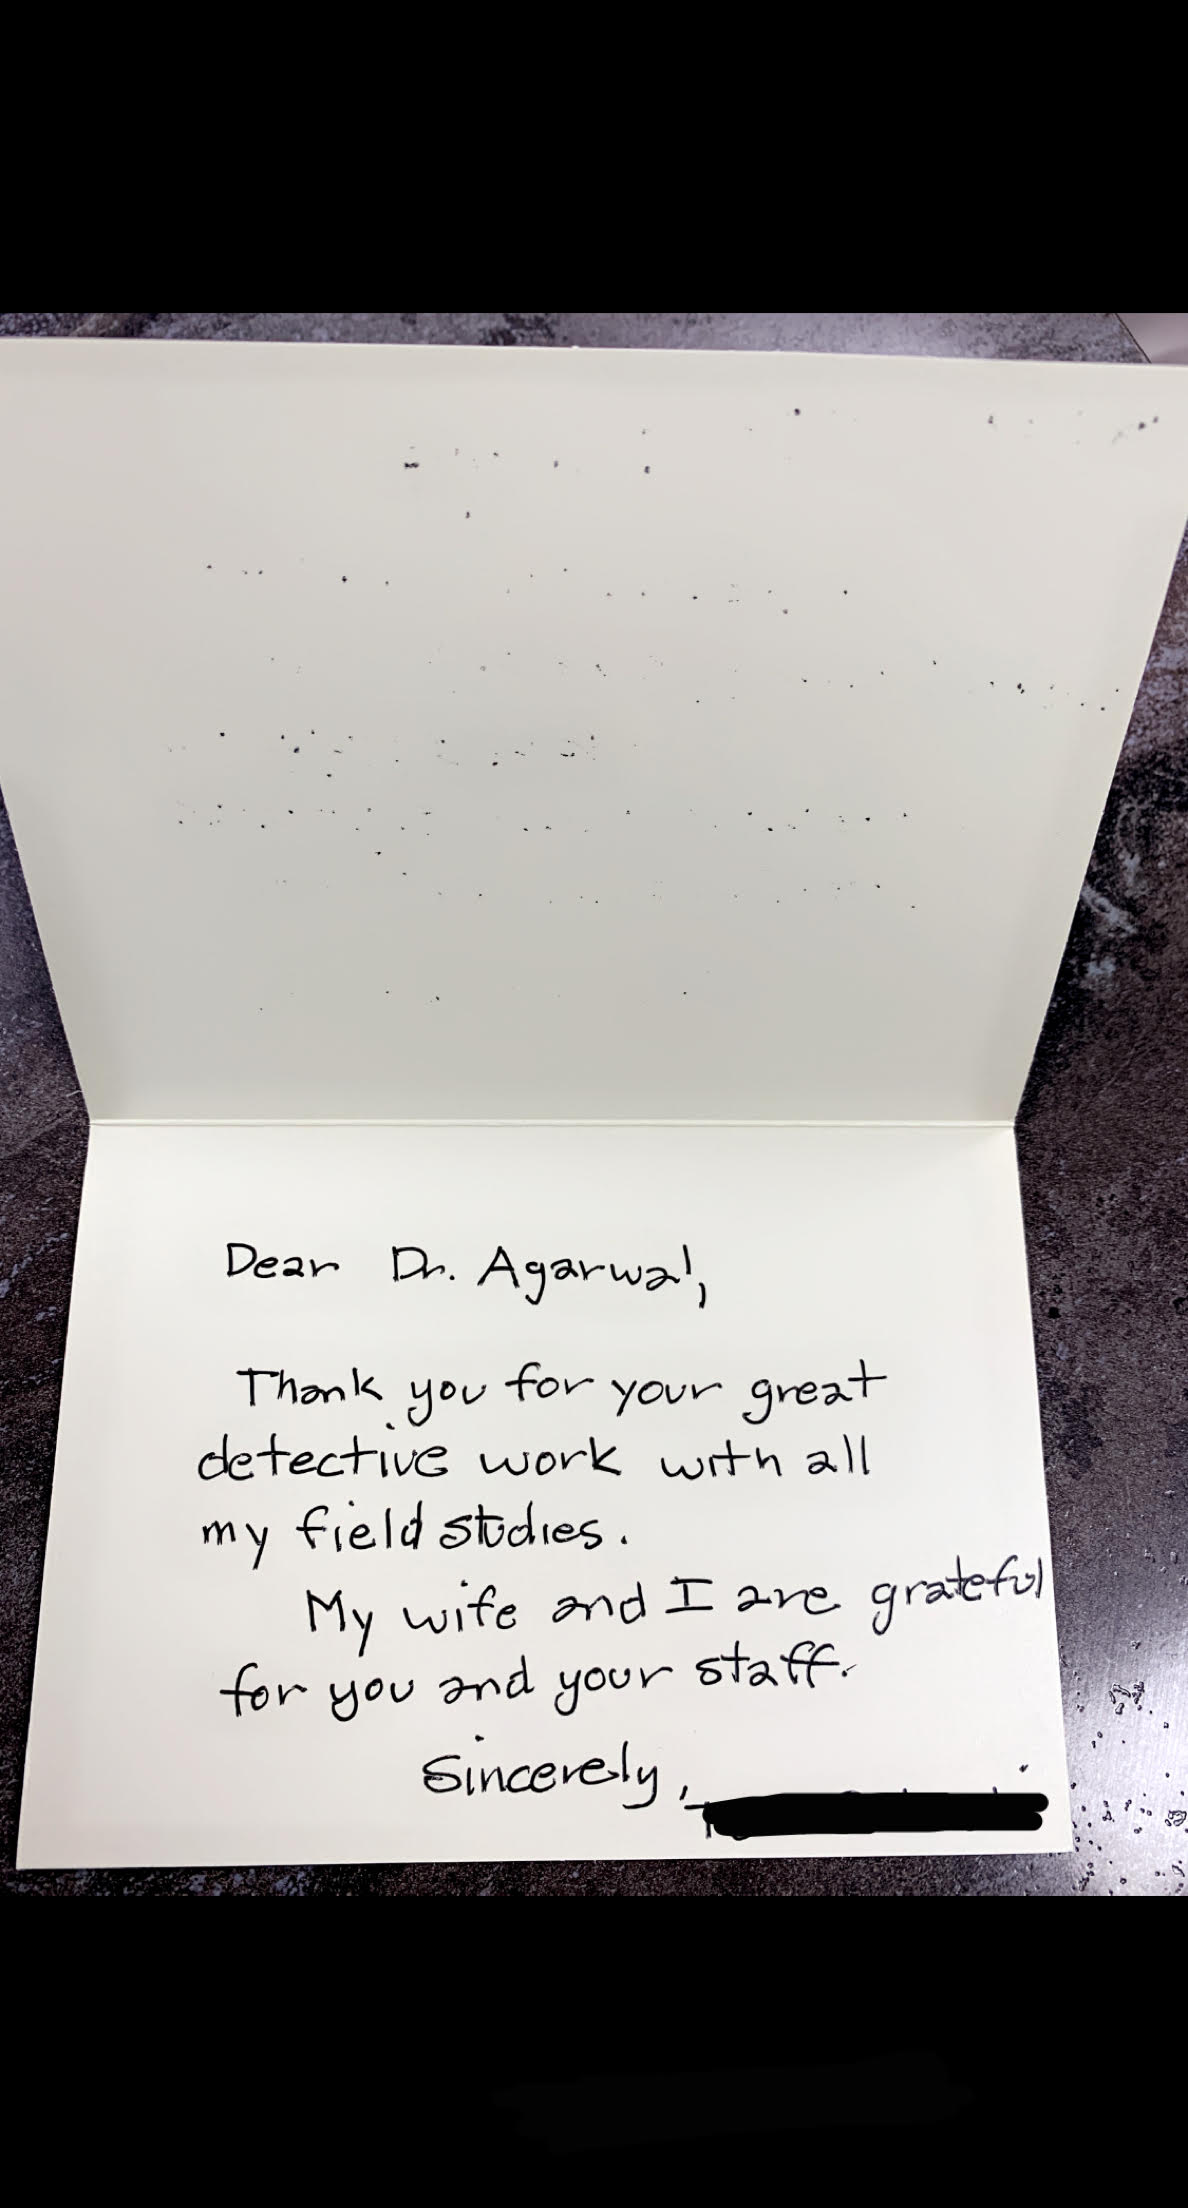 Dear Dr. Agarwal,
Thank you for your great
detective work with all
my field studies.
My wife and I are grateful
for you and your staff.
Sincerely,